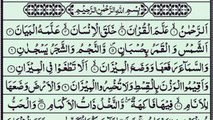 بِسْمِ اللهِ الرَّحْمٰنِ الرَّحِيْمِ
اَلرَّحْمٰنُ ۙ عَلَّمَ الْقُرْاٰنَ ؕ خَلَقَ الْاِنْسَانَ ۙ عَلَّمَهُ الْبَيَانَ
اَلشَّمْسُ وَ الْقَمَرُ بِحُسْبَانٍ ۪ وَّ النَّجْمُ وَ الشَّجَرُ يَسْجُدٰنِ
وَ السَّمَآءَ رَفَعَهَا وَ وَضَعَ الْمِيْزَانَ ۙ اَلَّا تَطْغَوْا فِي الْمِيْزَانِ
وَ اَقِيْمُوا الْوَزْنَ بِالْقِسْطِ وَ لَا تُخْسِرُوا الْمِيْزَانَ وَ الْاَرْضَ وَضَعَهَا
لِلْاَنَامِ ۙ فِيْهَا فَاكِهَةٌ ۪ۙ وَّ النَّخْلُ ذَاتُ الْاَكْمَامِ ۖ وَ الْحَبُّ